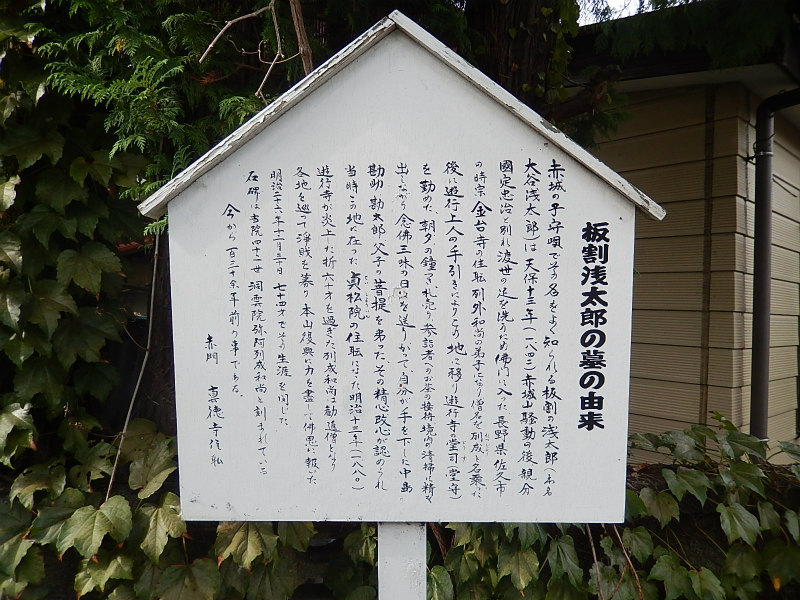 板割浅太郎の墓の由来
赤城の子守唄でその名をよく知られる板割の浅太郎(本名
大谷浅太郎)は天保十三年(一八四二)赤城山騒動の後親分
國定忠治と別れ渡世の足を洗うため佛門に入った 長野県佐久市
の時宗 金台寺の住職 列外和尚の弟子になり僧名を列成と名乗った
後に遊行上人の手引きによりこの地に移り 遊行寺の堂司(堂守)
を勤めた、朝夕の鐘つき札売り参詣者へのお茶の接待境内の清掃に精を
出しながら 念佛三昧の日々を送りかつて、自分が手を下した中島
勘助 勘太郎父子の菩提を弔った、その精心改心が認められ
当時この地に在った 貞松院の住職になった 明治十三年(一八八〇)
遊行寺が炎上した折 六十才を過ぎた列成和尚は勧進僧となり
各地を巡って浄財を募り 本山復興に力を盡して佛恩に報いた
明治二十六年十二月 七十四才でその生涯を閉じた
石碑に 当院四十二世 洞雲院弥阿列成和尚と刻まれている
今から 百三十余年前の事である。
赤門 真徳寺住職